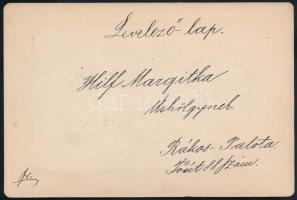 Levelező-lap.
Hilf Margitka
Úrhölgynek
Rákos-Palota
Fóút 88 szám.